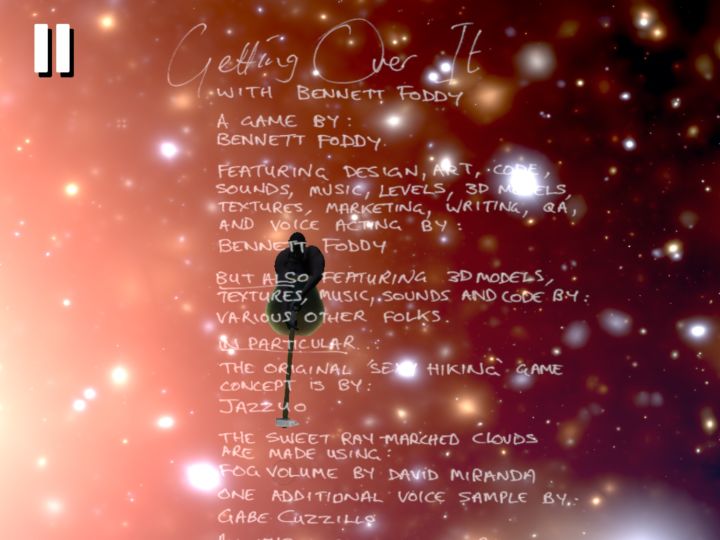 Getting Over It
WITH BENNETT FODDY
A GAME BY:
BENNETT FODDY
FEATURING DESIGN, ART, CODE,
SOUNDS, MUSIC, LEVELS, 3D MODELS,
TEXTURES, MARKETING, WRITING, QA,
AND VOICE ACTING BY:
BENNETT FODDY
BUT ALSO FEATURING 3D MODELS,
TEXTURES, MUSIC, SOUNDS AND CODE BY:
VARIOUS OTHER FOLKS.
IN PARTICULAR...
THE ORIGINAL 'SEXY HIKING' GAME
CONCEPT IS BY:
JAZZUO
THE SWEET RAY-MARCHED CLOUDS
ARE MADE USING:
FOG VOLUME BY DAVID MIRANDA
ONE ADDITIONAL VOICE SAMPLE BY:
GABE CUZZILLO